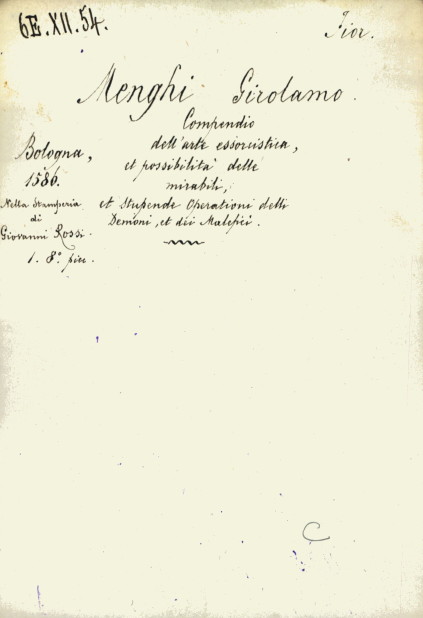 6E.XII.54.
Fior.
Menghi Girolamo.
Compendio
dell'arte essorcistica,
et possibilità delle
mirabili,
et Stupende Operationi delli
Demoni, et dei Malefici.
Bologna,
1580.
Nella Stamperia
di
Giovanni Rossi.
1. 8.° picc.
C